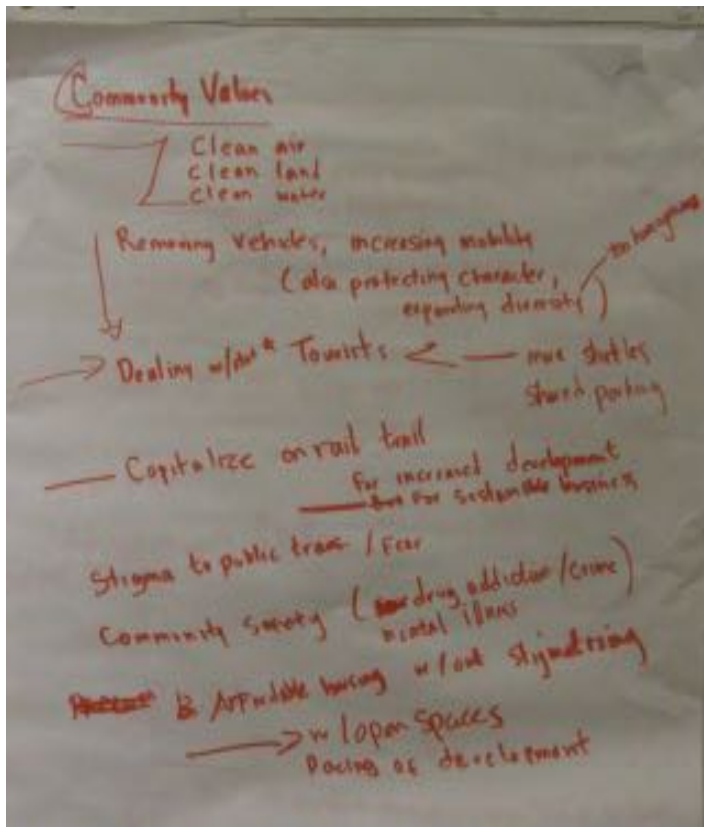 Community Values
Clean air
Clean land
Clean water
Removing vehicles, increasing mobility
(also protecting character,
expanding diversity)
Dealing w/ # Tourists
more shuttles
shared parking
Capitalize on rail trail
for increased development
for sustainable business
Stigma to public trans / Fear
Community Safety (drug addiction/crime)
mental illness
Affordable housing w/out stigmatizing
w/ open spaces
Pacing of development